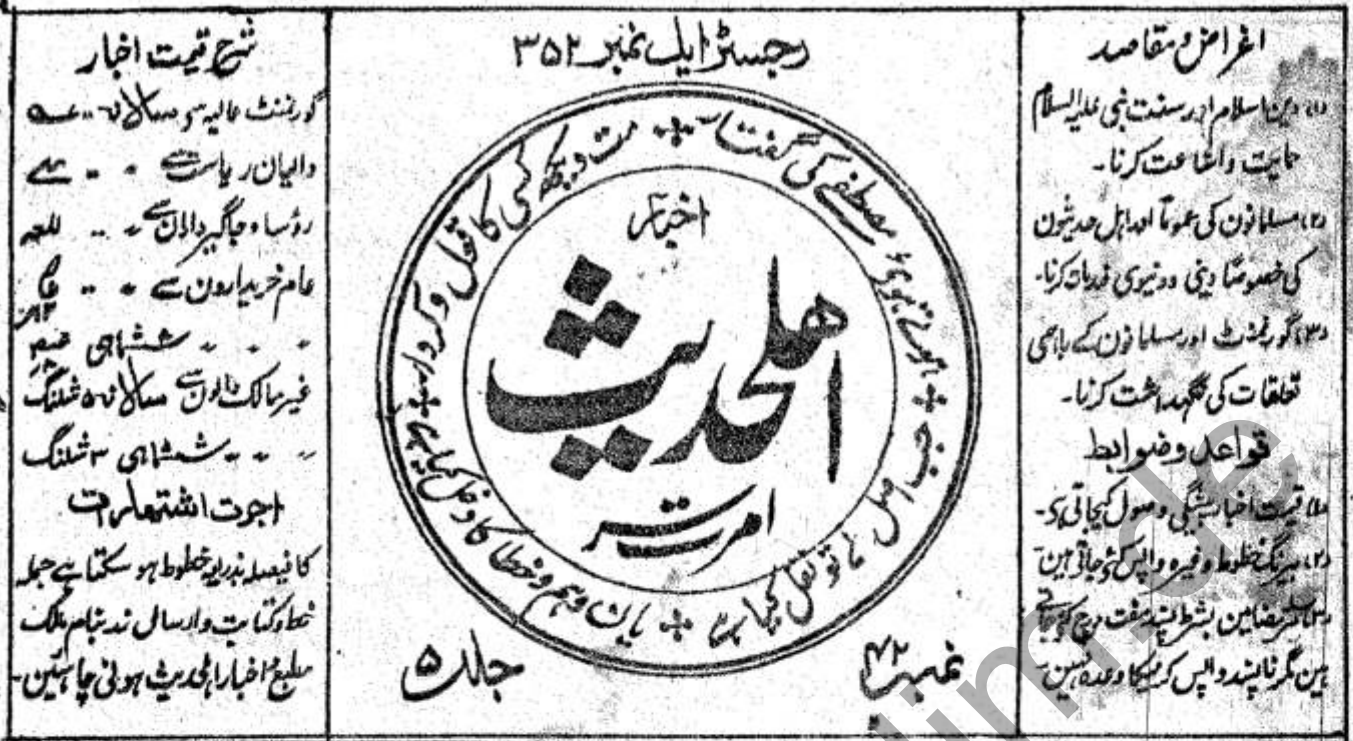 اغراض و مقاصد
(۱) دین اسلام اور سنت نبی علیہ السلام
حمایت و اشاعت کرنا۔
(۲) مسلمانون کی عموماً اور اہل حدیثون
کی خصوصاً دینی و دنیوی خدمات کرنا۔
(۳) گورنمنٹ اور مسلمانون کے باہمی
تعلقات کی نگہداشت کرنا۔
قواعد و ضوابط
(۱) قیمت اخبار پیشگی وصول کیجاتی ہی۔
(۲) بیرنگ خطوط وغیرہ واپس کئے جاتی ہین
(۳) مضامین بشرط پسند مفت درج کئے جاتے
ہین مگر ناپسند واپس کرنیکا وعدہ نہین۔
رجسٹر ایل نمبر ۳۵۲
ہوتے ہوئے مصطفے کی گفتار ÷ مت دیکھ کسی کا قول و کردار
جب اصل ملے تو نقل کیا ہے ÷ یان وہم و خطا کا دخل کیا ہے
اخبار
اھلحدیث
امرتسر
نمبر ۴۲
جلد ۵
شرح قیمت اخبار
گورنمنٹ عالیہ سے سالانہ
والیان ریاست سے
رؤسا و جاگیرداران سے
عام خریدارون سے
ششماہی
غیر ممالک والون سے سالانہ ۵ شلنگ
ششماہی ۳ شلنگ
اجرت اشتہارات
کا فیصلہ بذریعہ خطوط ہو سکتا ہے جملہ
خط و کتابت و ارسال زر بنام مالک
مطبع اخبار اہلحدیث ہونی چاہئین۔